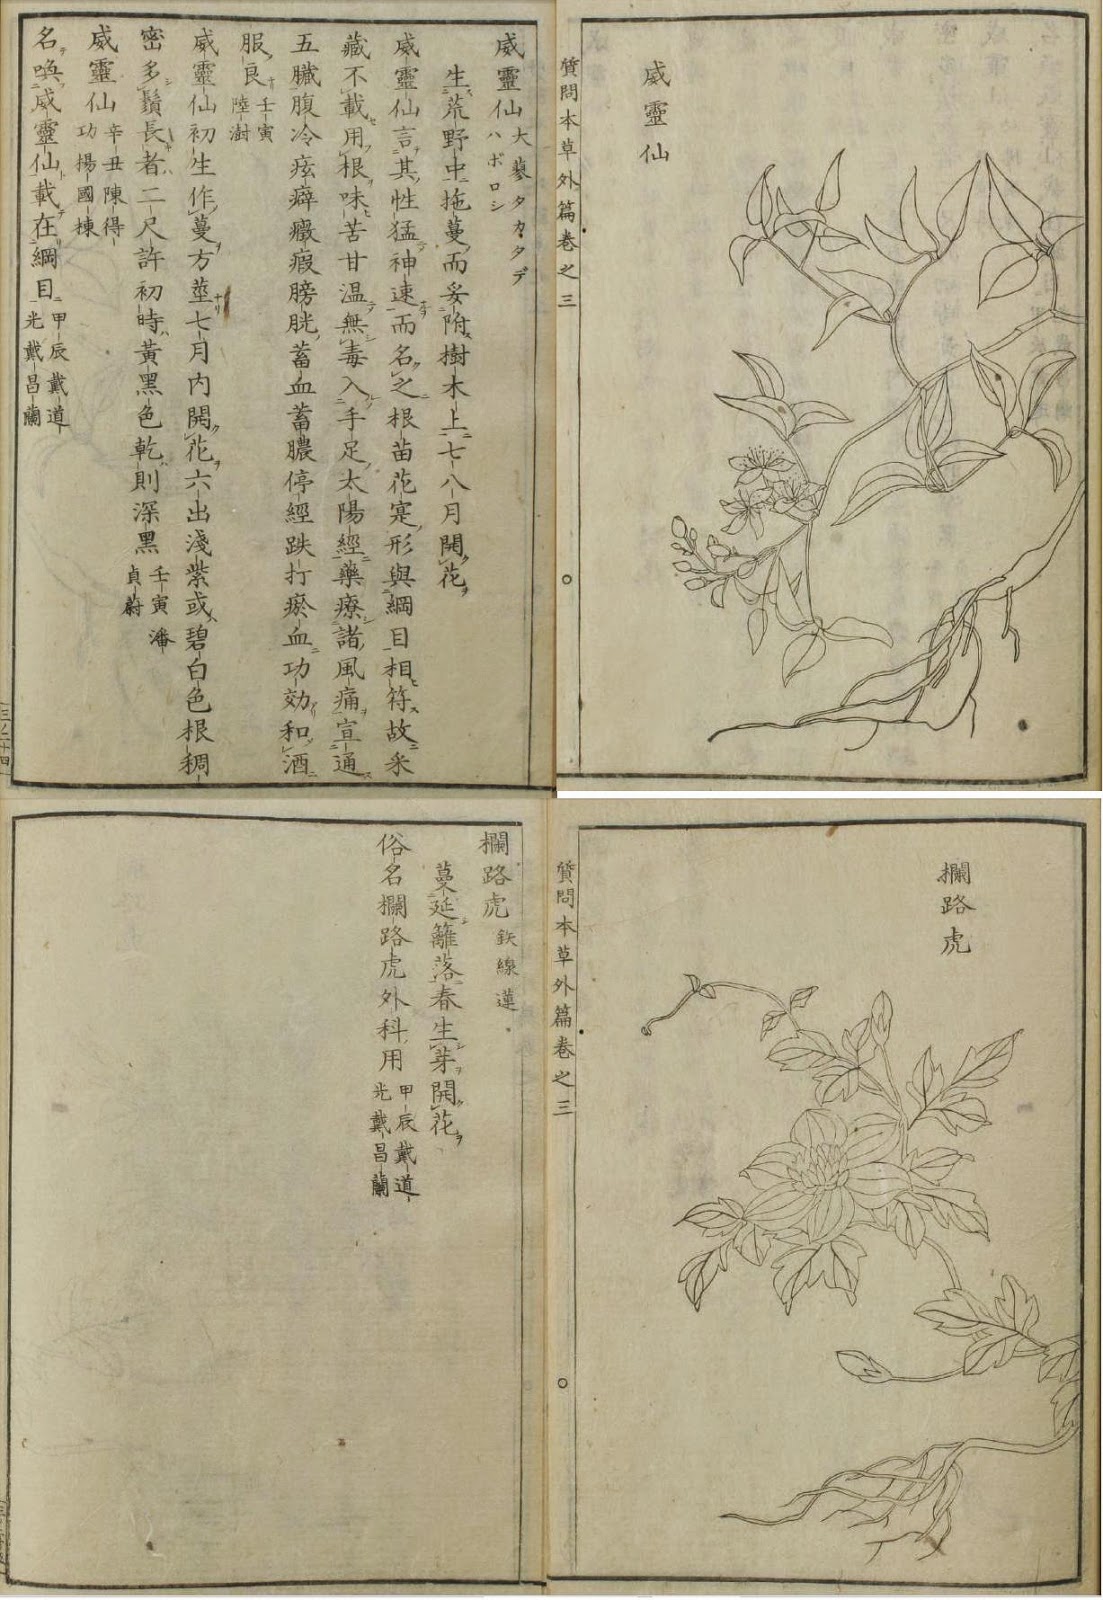 威靈仙
質問本草外篇卷之三
威靈仙 大蓼タカタデ ハボロシ
生荒野中拖蔓而妥附樹木上七八月開花
威靈仙言其性猛神速而名之根苗花寔形與綱目相符故采
藏不載用根味苦甘溫無毒入手足太陽經藥療諸風痛宣通
五臟腹冷痃癖癥瘕膀胱蓄血蓄膿停經跌打瘀血功効和酒
服良 壬寅陸澍
威靈仙初生作蔓方莖七月內開花六出淺紫或碧白色根稠
密多鬚長者二尺許初時黃黑色乾則深黑 壬寅潘貞蔚
威靈仙 辛丑陳得功楊國棟
名喚威靈仙載在綱目 甲辰戴道光戴昌蘭
欄路虎
質問本草外篇卷之三
欄路虎 鉄線蓮
蔓延籬落春生芽開花
俗名欄路虎外科用 甲辰戴道光戴昌蘭